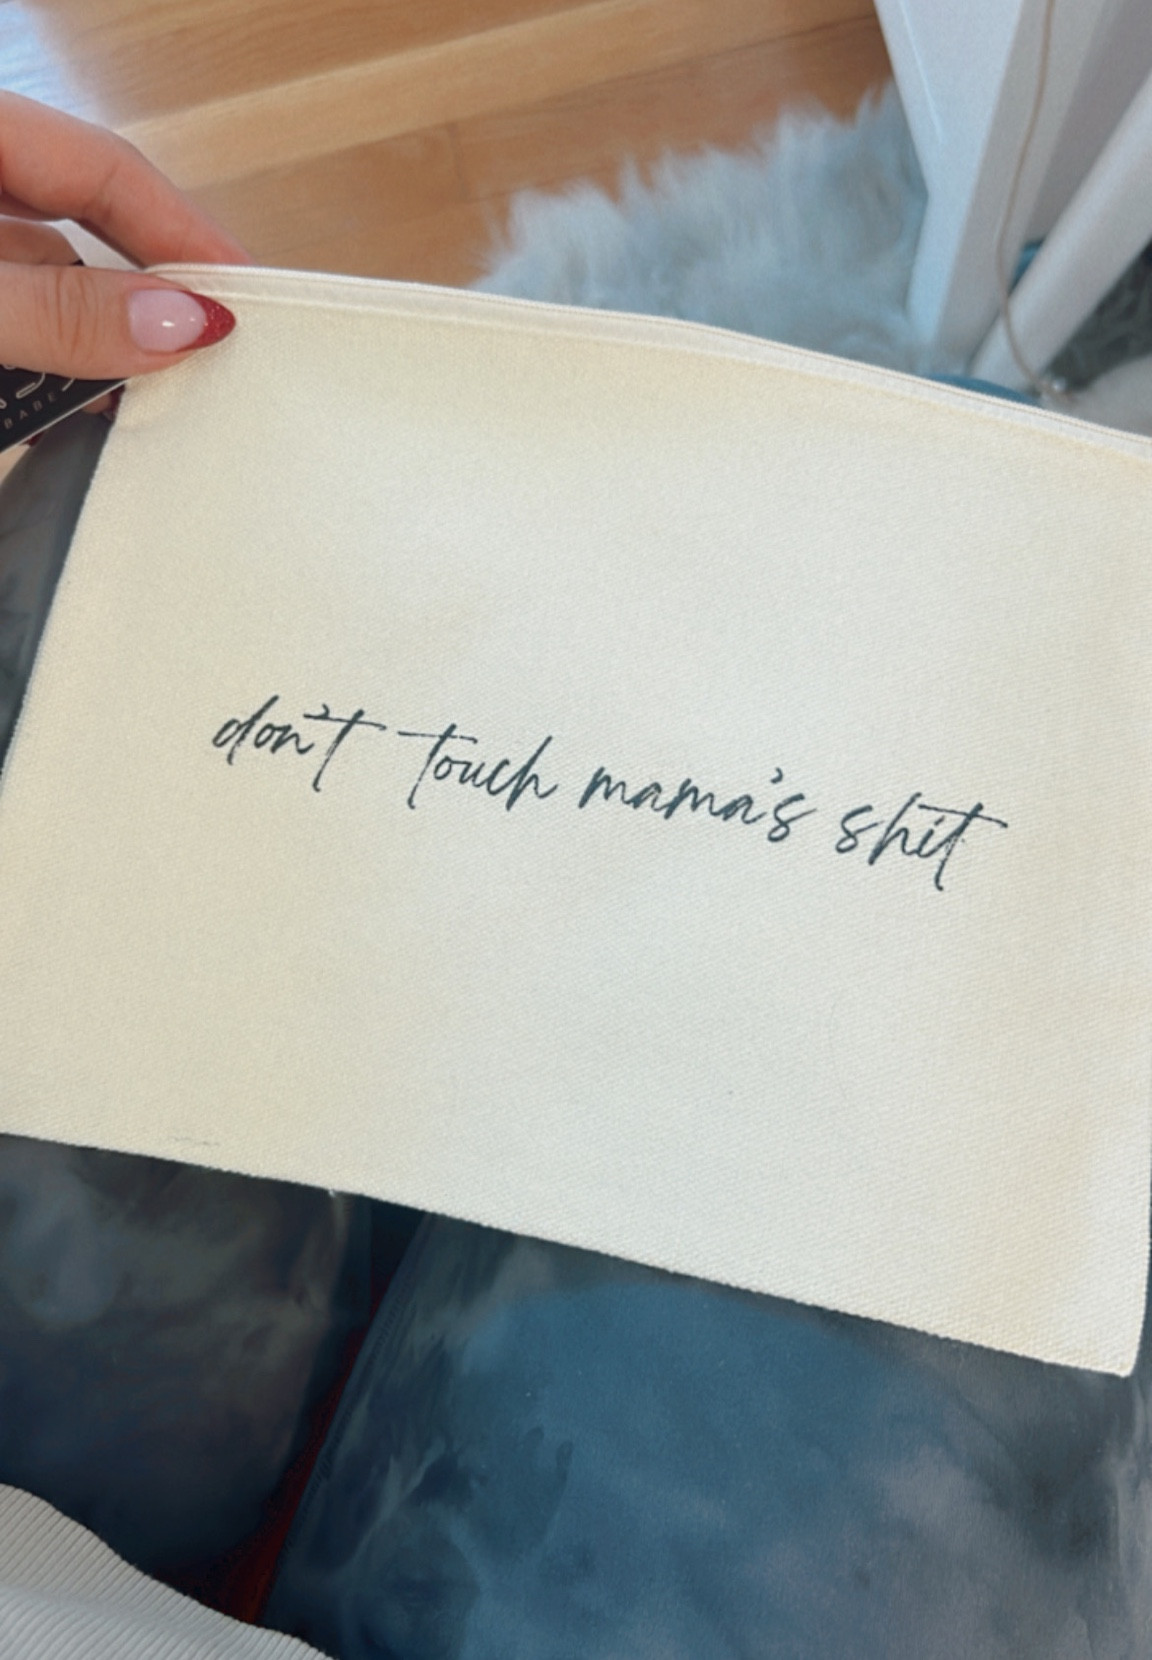 don't touch mama's shit
BABE